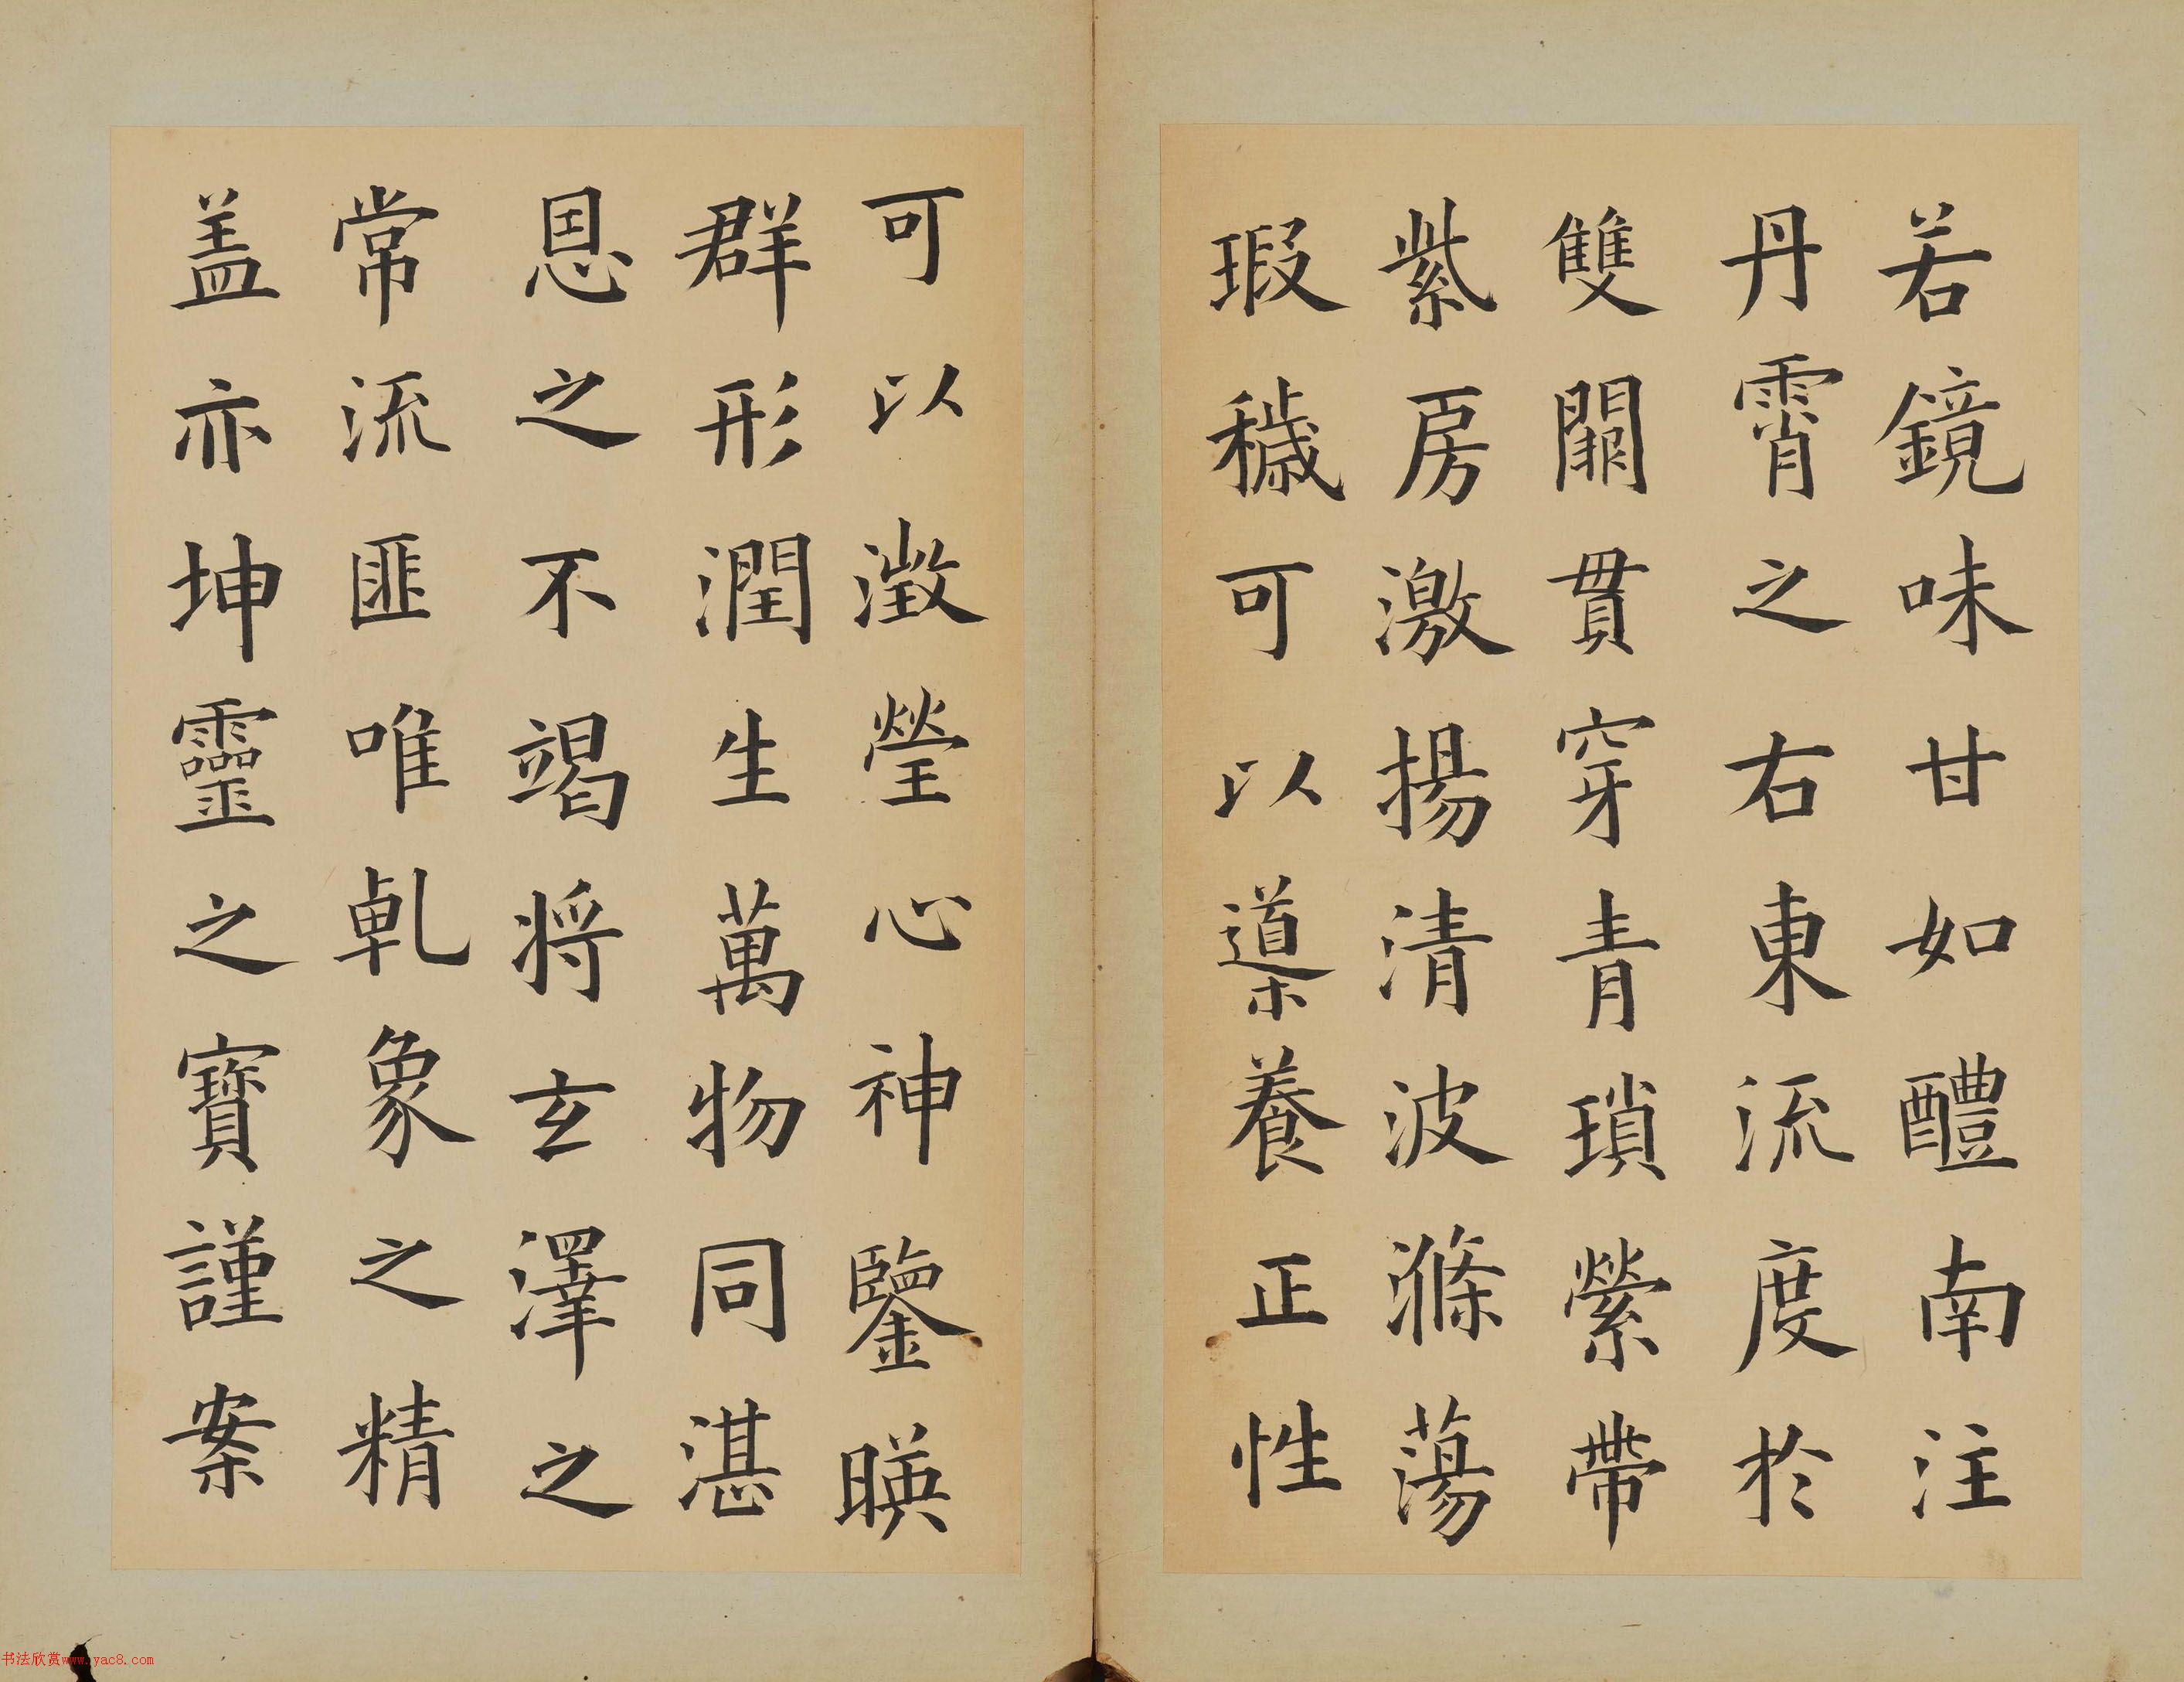 若鏡味甘如醴南注
丹霄之右東流度於
雙闕貫穿青瑣縈帶
紫房激揚清波滌蕩
瑕穢可以導養正性
可以澂瑩心神鑒暎
群形潤生萬物同湛
恩之不竭將玄澤之
常流匪唯乹象之精
盖亦坤靈之寶謹案
书法欣赏www.yac8.com